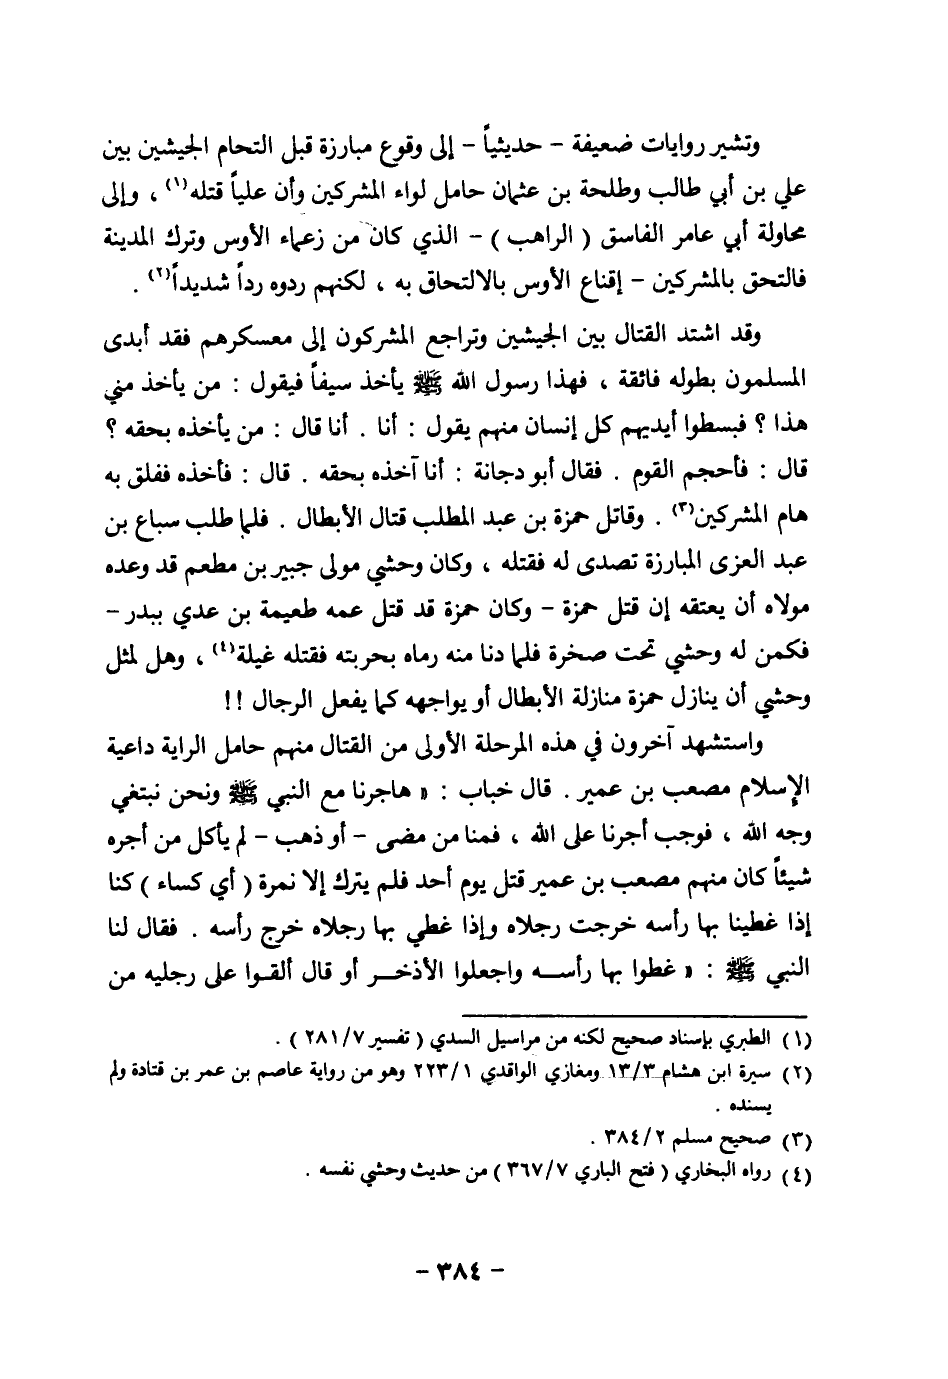 وتشير روايات ضعيفة - حديثياً - إلى وقوع مبارزة قبل التحام الجيشين بين
علي بن أبي طالب وطلحة بن عثمان حامل لواء المشركين وأن علياً قتله(١) ، وإلى
محاولة أبي عامر الفاسق ( الراهب ) - الذي كان من زعماء الأوس وترك المدينة
فالتحق بالمشركين - إقناع الأوس بالالتحاق به ، لكنهم ردوه رداً شديداً(٢) .
وقد اشتد القتال بين الجيشين وتراجع المشركون إلى معسكرهم فقد أبدى
المسلمون بطوله فائقة ، فهذا رسول الله ﷺ يأخذ سيفاً فيقول : من يأخذ مني
هذا ؟ فبسطوا أيديهم كل إنسان منهم يقول : أنا . أنا قال : من يأخذه بحقه ؟
قال : فأحجم القوم . فقال أبو دجانة : أنا آخذه بحقه . قال : فأخذه ففلق به
هام المشركين(٣) . وقاتل حمزة بن عبد المطلب قتال الأبطال . فلما طلب سباع بن
عبد العزى المبارزة تصدى له فقتله ، وكان وحشي مولى جبير بن مطعم قد وعده
مولاه أن يعتقه إن قتل حمزة - وكان حمزة قد قتل عمه طعيمة بن عدي ببدر -
فكمن له وحشي تحت صخرة فلما دنا منه رماه بحربته فقتله غيلة(٤) ، وهل لمثل
وحشي أن ينازل حمزة منازلة الأبطال أو يواجهه كما يفعل الرجال !!
واستشهد آخرون في هذه المرحلة الأولى من القتال منهم حامل الراية داعية
الإسلام مصعب بن عمير . قال خباب : « هاجرنا مع النبي ﷺ ونحن نبتغي
وجه الله ، فوجب أجرنا على الله ، فمنا من مضى - أو ذهب - لم يأكل من أجره
شيئاً كان منهم مصعب بن عمير قتل يوم أحد فلم يترك إلا نمرة ( أي كساء ) كنا
إذا غطينا بها رأسه خرجت رجلاه وإذا غطي بها رجلاه خرج رأسه . فقال لنا
النبي ﷺ : « غطوا بها رأسه واجعلوا الأذخر أو قال ألقوا على رجليه من
(١) الطبري بإسناد صحيح لكنه من مراسيل السدي ( تفسير ٢٨١/٧ ) .
(٢) سيرة ابن هشام ١٣/٣ ومغازي الواقدي ٢٢٣/١ وهو من رواية عاصم بن عمر بن قتادة ولم
يسنده .
(٣) صحيح مسلم ٣٨٤/٢ .
(٤) رواه البخاري ( فتح الباري ٣٦٧/٧ ) من حديث وحشي نفسه .
- ٣٨٤ -